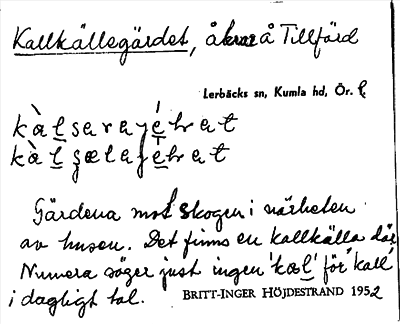 Kallkällegärdet, åkrar å Tillfjärd
Lerbäcks sn, Kumla hd, Ör. l
Gärdena mot skogen i närheten
av husen. Det finns en kallkälla där
Numera säger just ingen 'kæl' för 'kall'
i dagligt tal. BRITT-INGER HÖJDESTRAND 1952